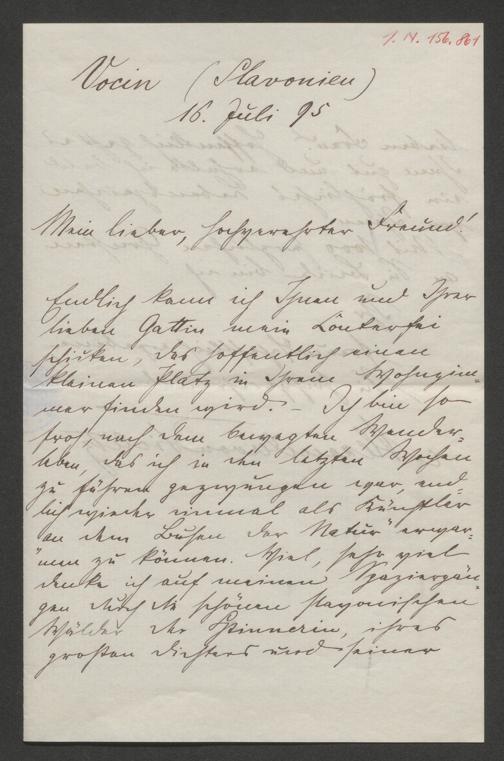 I. N. 156.861
Vocin (Slavonien)
16. Juli 95
Mein lieber, hochverehrter Freund!
Endlich kann ich Ihnen und Ihrer
lieben Gattin mein Conterfei
schicken, das hoffentlich einen
kleinen Platz in Ihrem Wohnzim-
mer finden wird. – Ich bin so
froh, nach dem bewegten Wander-
leben, das ich in den letzten Wochen
zu führen gezwungen war, end-
lich wieder einmal als Künstler
an dem Busen der Natur "erwar-
men" zu können. Viel, sehr viel
denke ich auf meinen Spaziergän-
gen durch die schönen slavonischen
Wälder der Spinnerin, ihres
großen Dichters und seiner